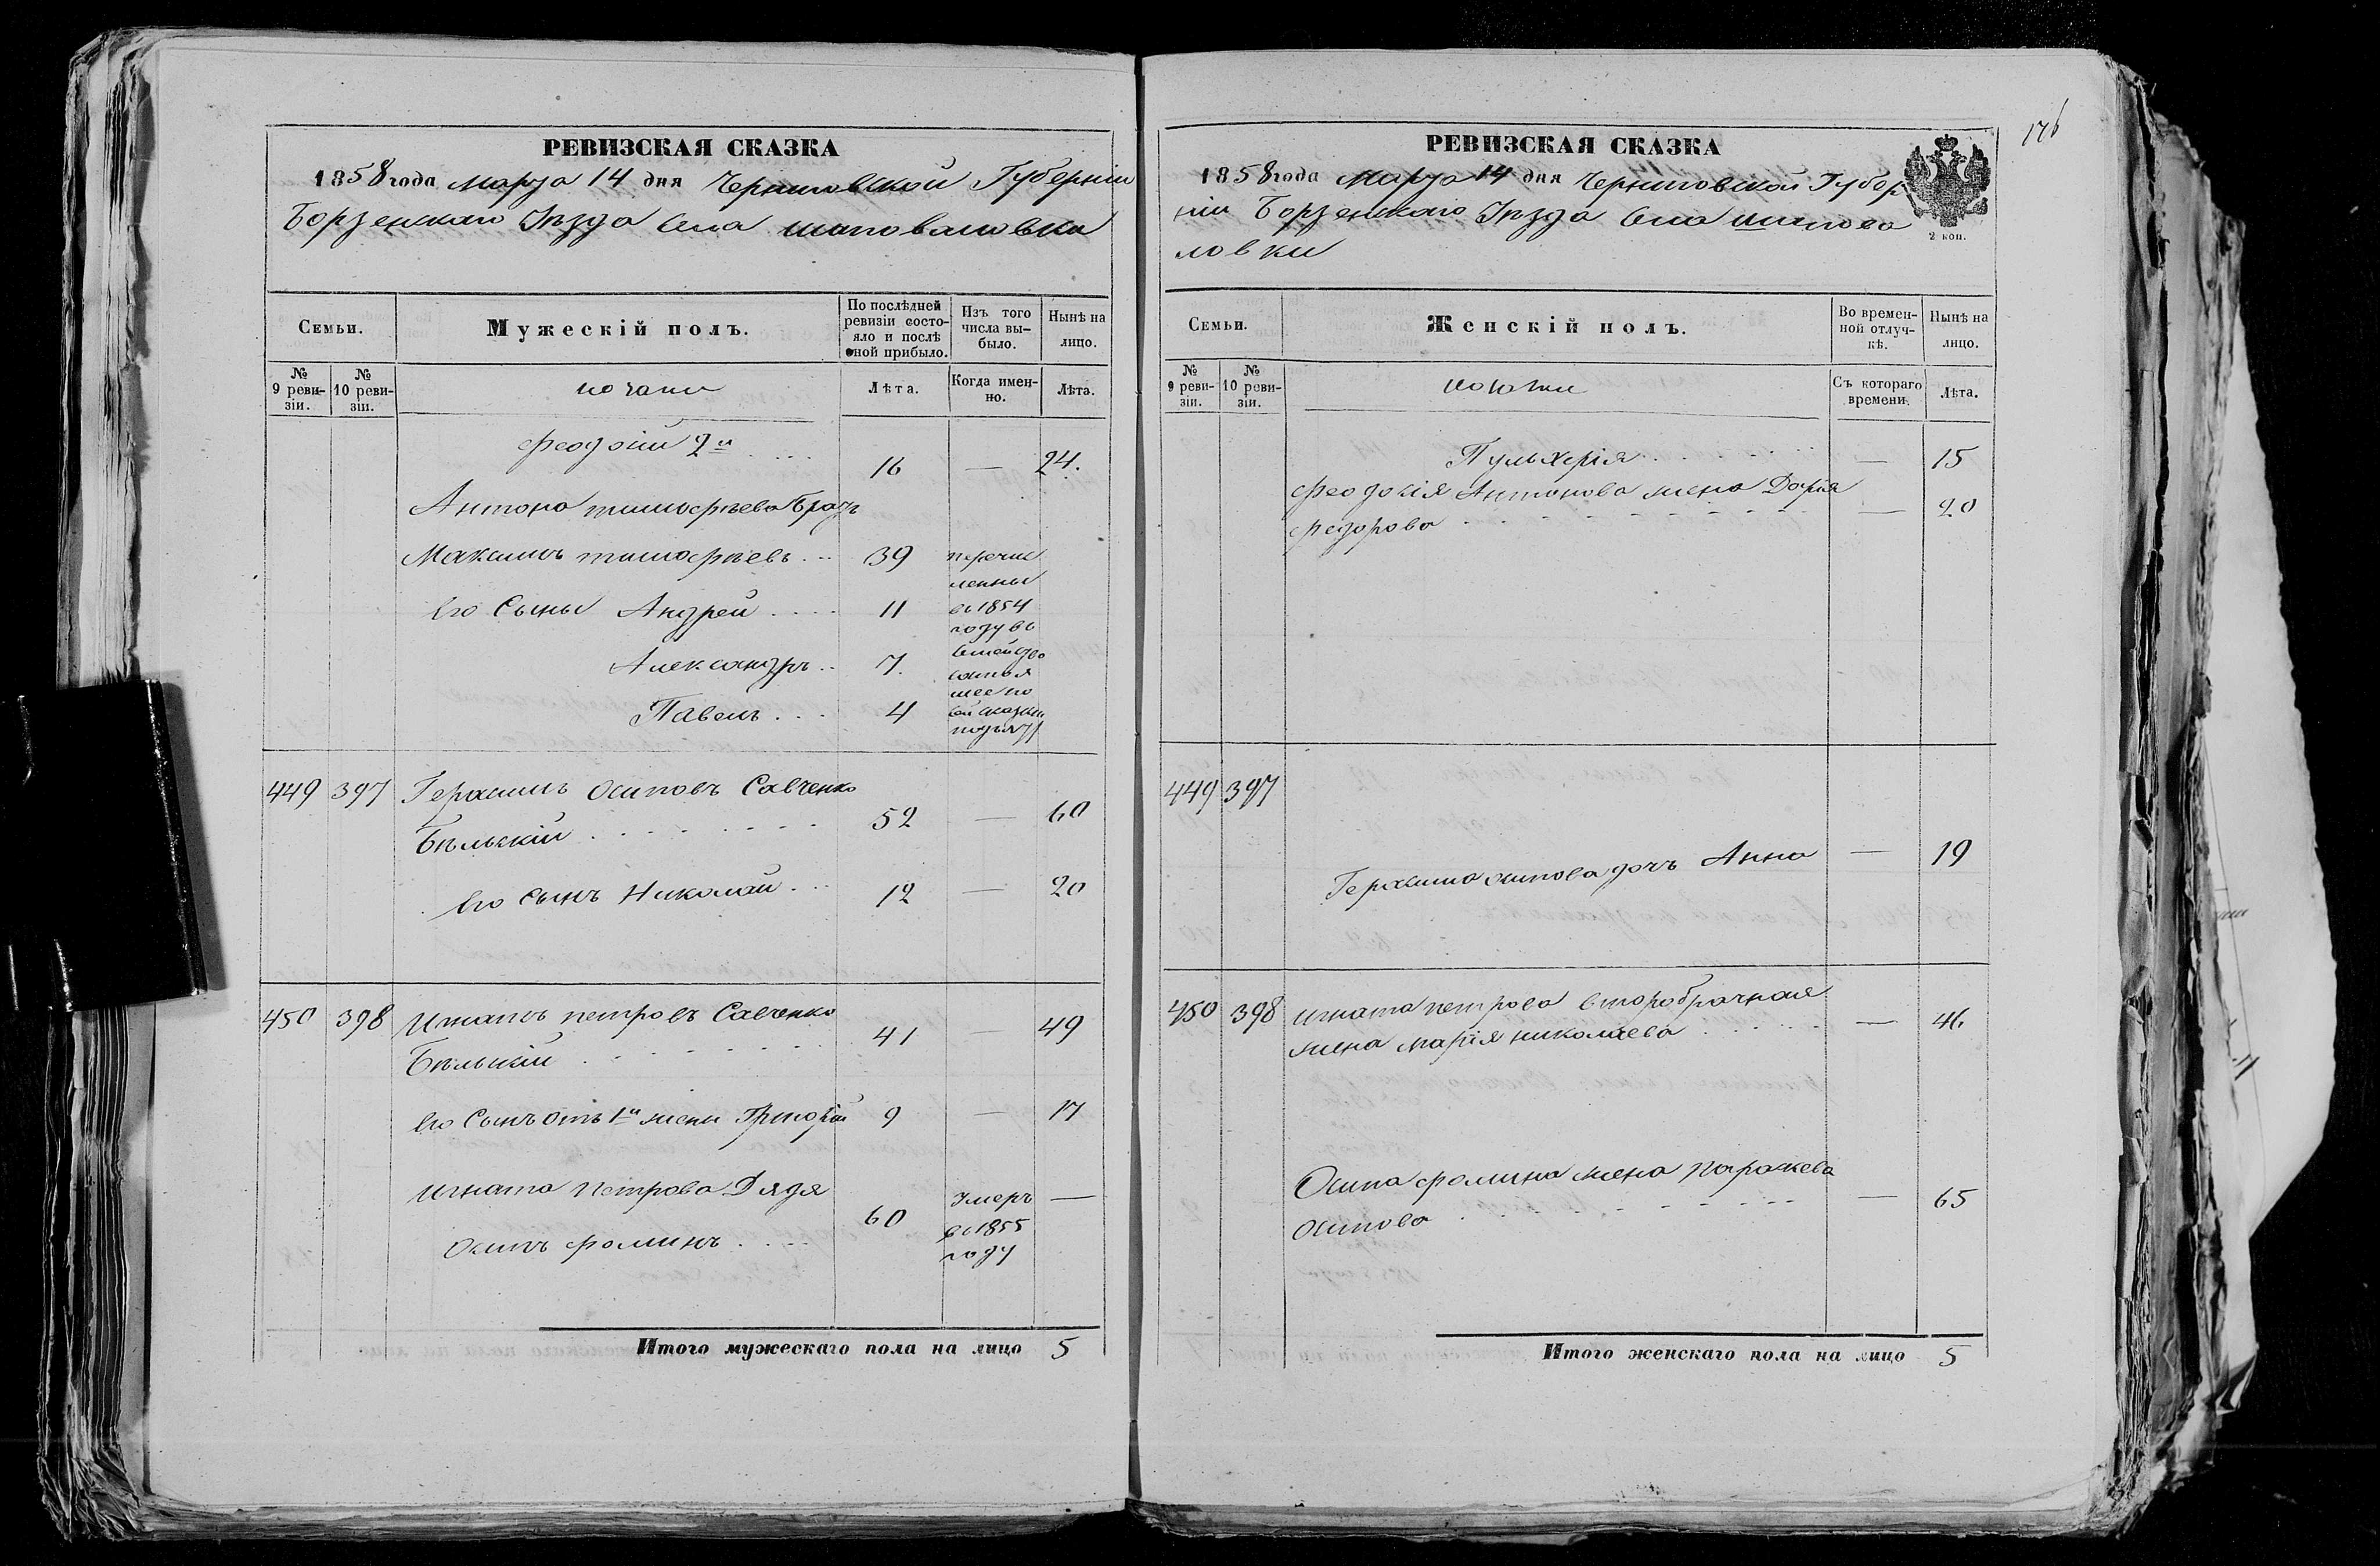 РЕВИЗСКАЯ СКАЗКА
1858 года Марта 14 дня Черниговской Губерніи
Борзенскаго Уѣзда Села Шаповаловки
Семьи.
Мужескій полъ.
По послѣдней ревизіи состояло и послѣ оной прибыло.
Изъ того числа выбыло.
Нынѣ на лицо.
№ 9 ревизіи.
№ 10 ревизіи.
Лѣта.
Когда именно.
Лѣта.
Феодосій 2й 16 — 24.
Антона тимофѣева Братъ
Максимъ тимофѣевъ 39 перечис
ленны
Его Сыны Андрей 11 въ 1854
году въ
Александръ 7. семейство
Павелъ 4
449 397 Герасимъ Осиповъ Савченко
Бѣлыкій 52 — 60
Его Сынъ Николай 12 — 20
450 398 Игнатъ петровъ Савченко
Бѣлыкій 41 — 49
Его Сынъ отъ 1й жены Григорій 9 — 17
Игната Петрова Дядя
Осипъ фоминъ 60 Умеръ —
въ 1855
году
Итого мужескаго пола на лицо 5
176
РЕВИЗСКАЯ СКАЗКА
1858 года Марта 14 дня Черниговской Губер
ніи Борзенскаго Уѣзда Села Шапова
ловки
2 коп.
Семьи.
Женскій полъ.
Во временной отлучкѣ.
Нынѣ на лицо.
№ 9 ревизіи.
№ 10 ревизіи.
Съ котораго времени.
Лѣта.
Пульхерія — 15
Антонова жена Дарія
федорова — 20
449 397
Герасима осипова дочь Анна — 19
450 398 Игната петрова второбрачная
жена марія николаева — 46
Осипа фомина жена параскева
Осипова — 65
Итого женскаго пола на лицо 5